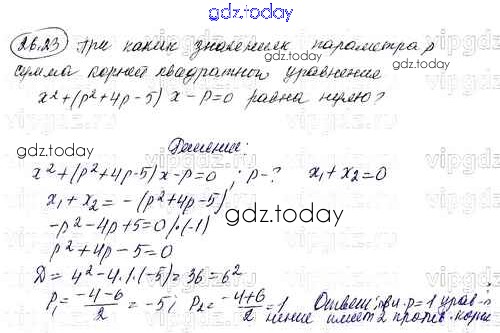 gdz.today
26.23 При каких значениях параметра p
сумма корней квадратного уравнения
x² + (p² + 4p - 5) x - p = 0 равна нулю?
gdz.today
Решение:
x² + (p² + 4p - 5) x - p = 0 ; p - ? x₁ + x₂ = 0
x₁ + x₂ = - (p² + 4p - 5)
gdz.today
-p² - 4p + 5 = 0 | · (-1)
p² + 4p - 5 = 0
D = 4² - 4 · 1 · (-5) = 36 = 6²
p₁ = (-4 - 6)/2 = -5 ; p₂ = (-4 + 6)/2 = 1 Ответ: при p = 1 урав-
нение имеет 2 против. корня
gdz.today